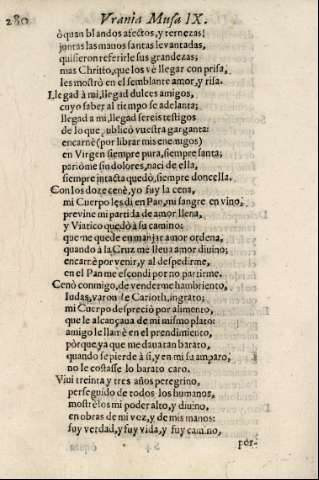 280 Vrania Musa IX.
ò quan blandos afectos, y ternezas!
juntas las manos santas leuantadas,
quisieron referirle sus grandezas;
mas Christo, que los vè llegar con prisa,
les mostrò en el semblante amor, y risa.
Llegad à mi, llegad dulces amigos,
cuyo saber al tiempo se adelanta;
llegad a mi, llegad sereis testigos
de lo que publicò vuestra garganta:
encarnè (por librar mis enemigos)
en Virgen siempre pura, siempre santa;
pariòme sin dolores, naci de ella,
siempre intacta quedò, siempre donzella.
Con los doze cenè, yo fuy la cena,
mi Cuerpo les di en Pan, mi sangre en vino,
preuine mi partida de amor llena,
y Viatico quedò à su camino:
que me quede en manjar amor ordena,
quando à la Cruz me lleua amor diuino;
encarnè por venir, y al despedirme,
en el Pan me escondi por no partirme.
Cenò conmigo, de venderme hambriento,
Iudas, varon de Carioth, ingrato;
mi Cuerpo despreciò por alimento,
que le alcançaua de mi mismo plato:
amigo le llamè en el prendimiento,
pòrque ya que me daua tan barato,
quando se pierde à si, y en mi su amparo,
no le costasse lo barato caro.
Viui treinta y tres años peregrino,
perseguido de todos los humanos,
mostrèlos mi poder alto, y diuino,
en obras de mi voz, y de mis manos:
fuy verdad, y fuy vida, y fuy camino,
por-